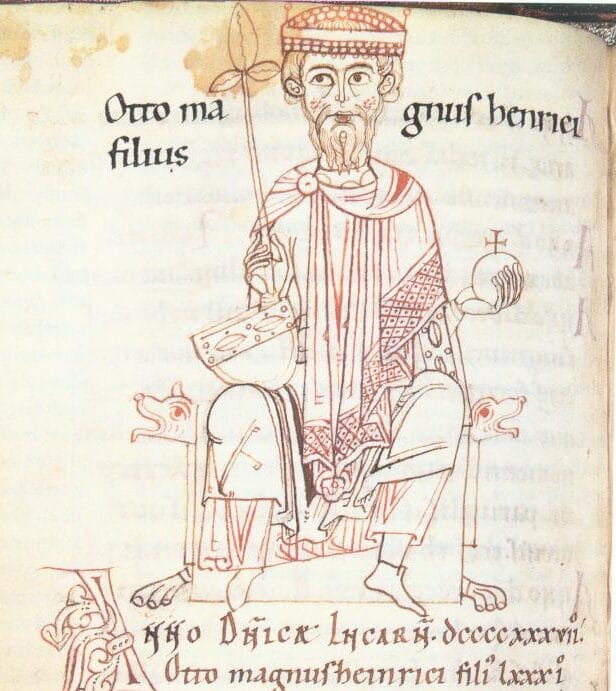 Otto ma gnuſ henrici
filius
ANNO DN̄ICE INCARN̄. dccccxxxvii͛.
Otto magnuſ heinrici filiꝰ lxxxiͦ